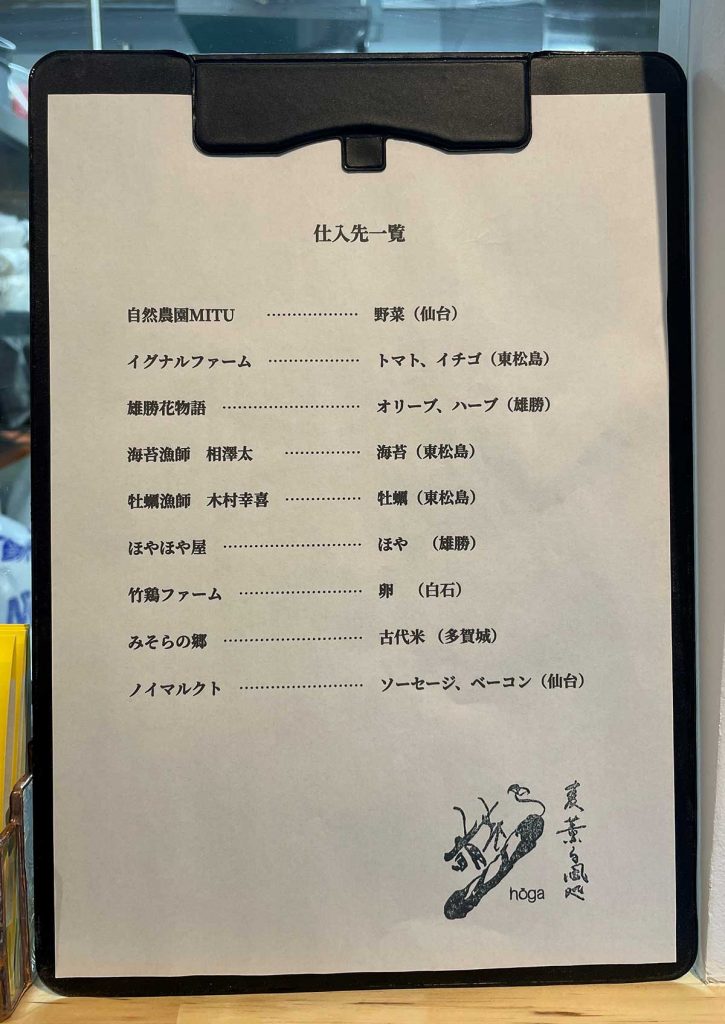 仕入先一覧
自然農園MITU ………………… 野菜（仙台）
イグナルファーム ………………… トマト、イチゴ（東松島）
雄勝花物語 ………………………… オリーブ、ハーブ（雄勝）
海苔漁師　相澤太 …………… 海苔（東松島）
牡蠣漁師　木村幸喜 …………… 牡蠣（東松島）
ほやほや屋 ………………………… ほや　（雄勝）
竹鶏ファーム ……………………… 卵　（白石）
みそらの郷 ………………………… 古代米（多賀城）
ノイマルクト ……………………… ソーセージ、ベーコン（仙台）
hōga